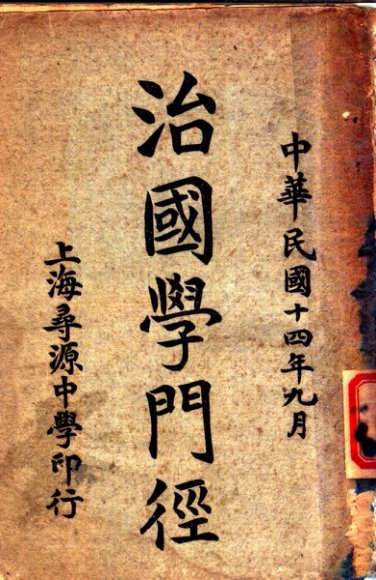 中華民國十四年九月
治國學門徑
上海尋源中學印行